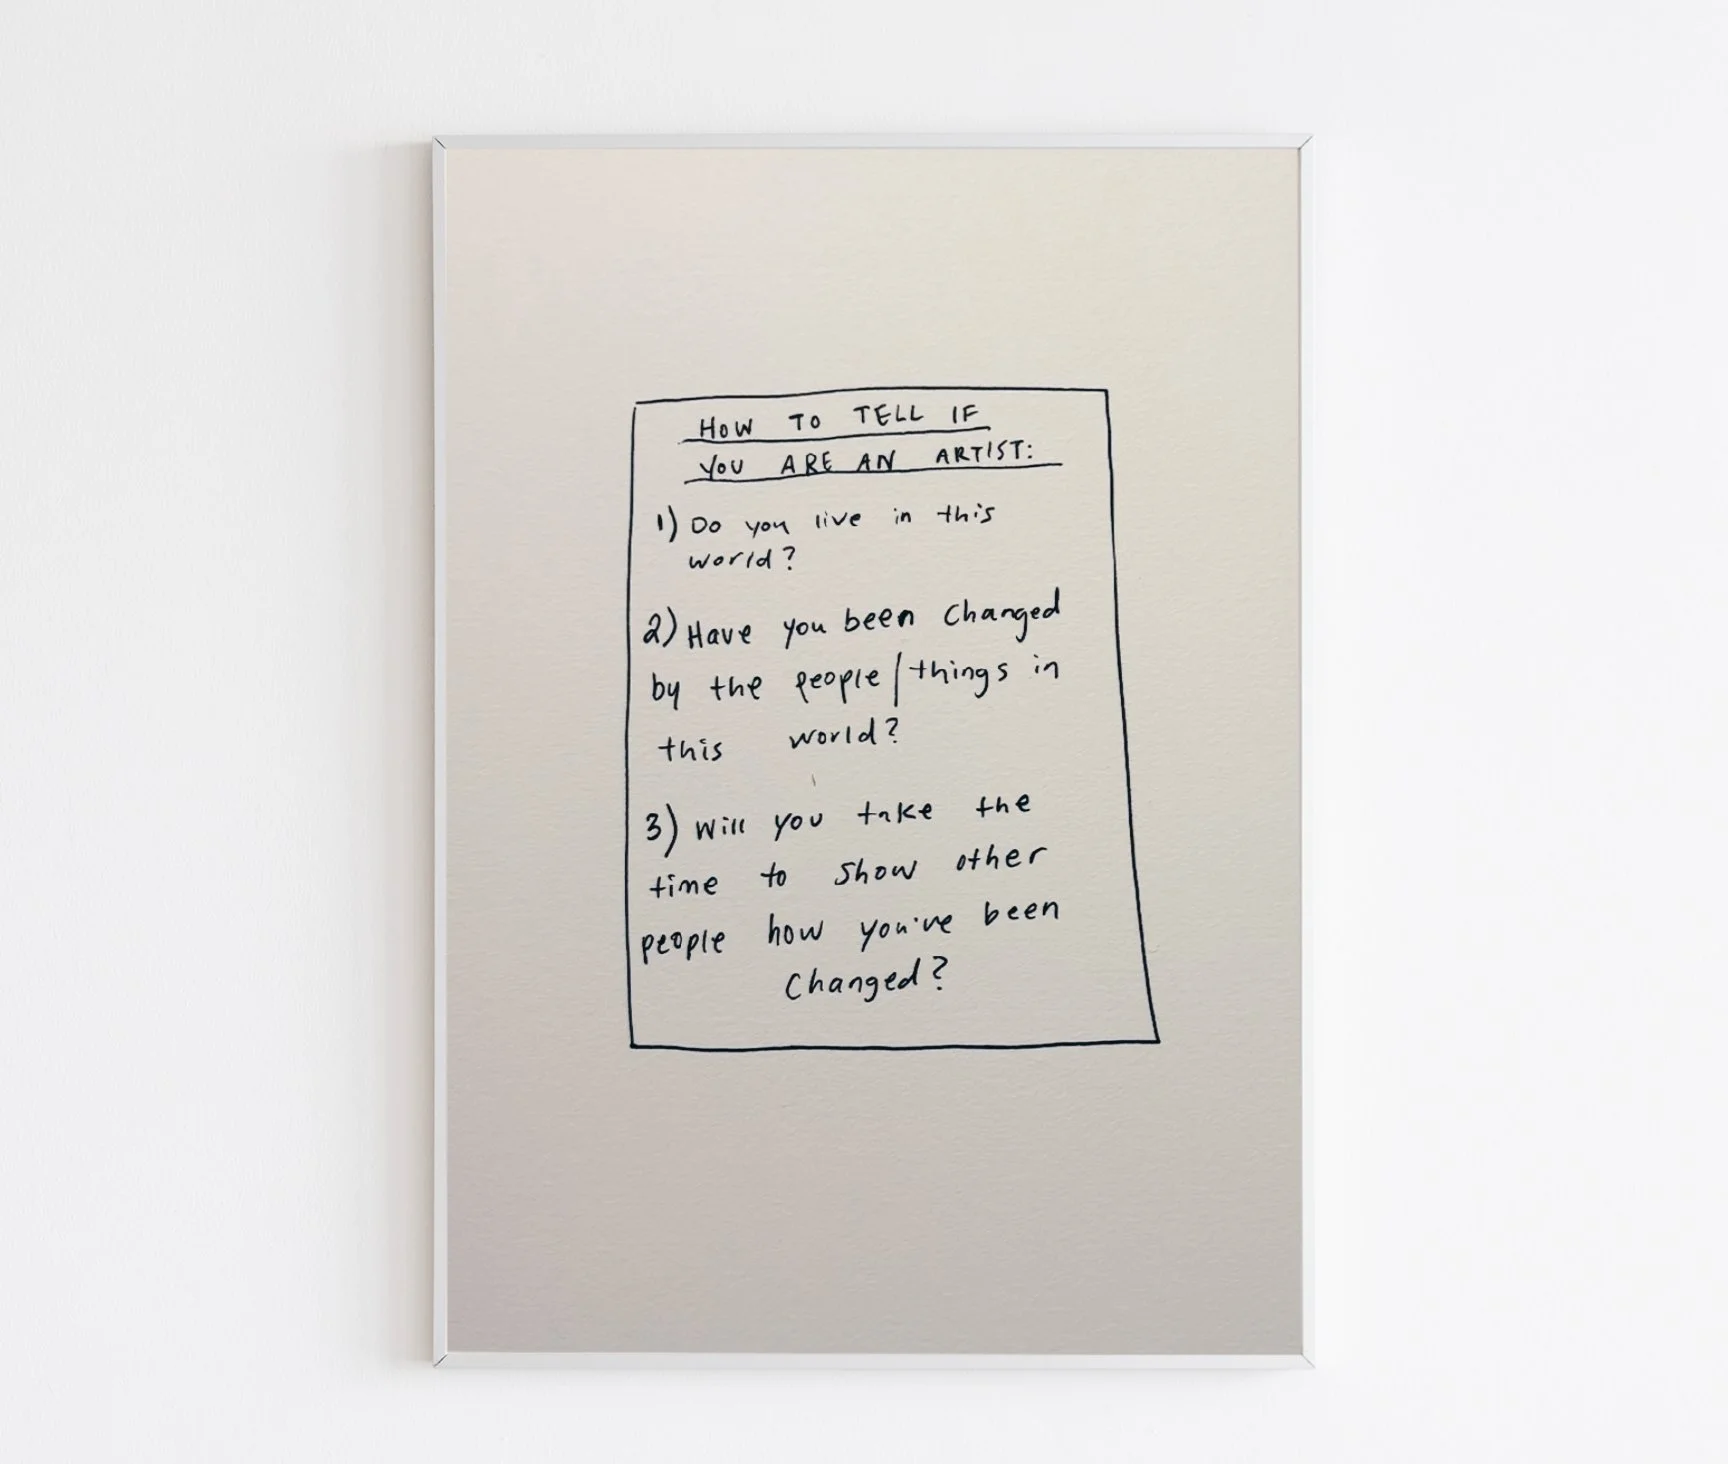 HOW TO TELL IF
YOU ARE AN ARTIST:
1) Do you live in this
world?
2) Have you been changed
by the people/things in
this world?
3) Will you take the
time to show other
people how you've been
Changed?